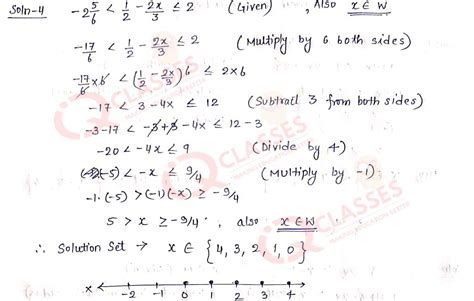 Soln-4 -2 5/6 < 1/2 - 2x/3 ≤ 2 (Given) , Also x ∈ W
-17/6 < 1/2 - 2x/3 ≤ 2 (Multiply by 6 both sides)
-17/6 × 6 < (1/2 - 2x/3) 6 ≤ 2×6
-17 < 3 - 4x ≤ 12 (Subtract 3 from both sides)
-3-17 < -3+3 - 4x ≤ 12-3
-20 < -4x ≤ 9 (Divide by 4)
(-5) < -x ≤ 9/4 (Multiply by -1)
-1·(-5) > (-1)(-x) ≥ -9/4
5 > x ≥ -9/4 , also x ∈ W
∴ Solution Set → x ∈ {4, 3, 2, 1, 0}
x -2 -1 0 1 2 3 4
CLASSES
CLASSES